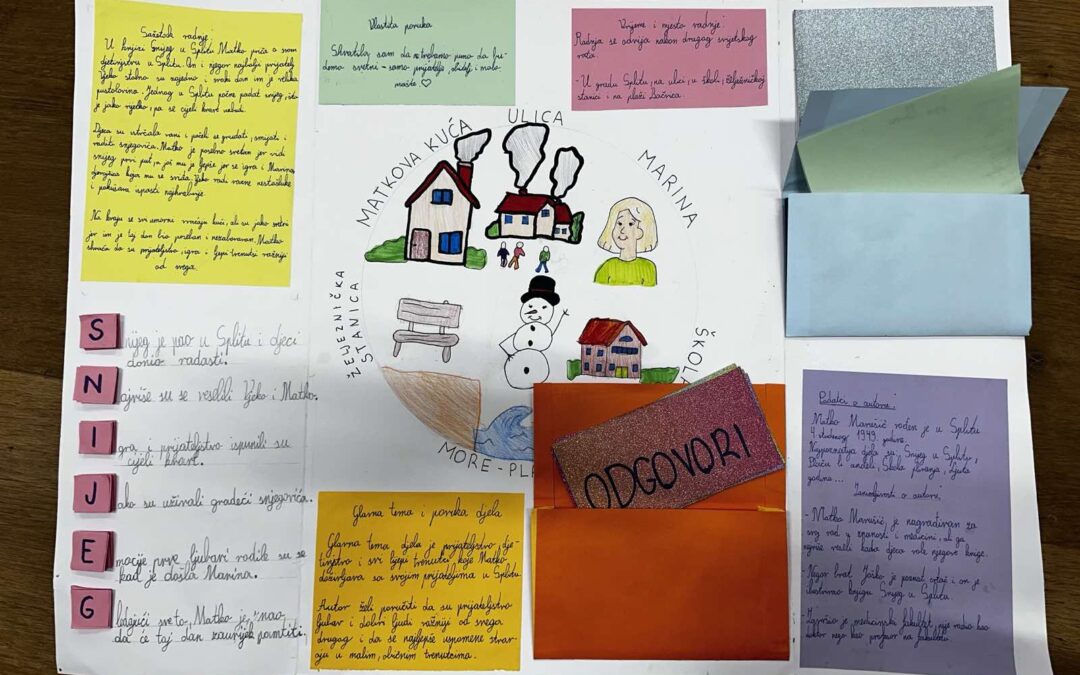 Sažetak radnje:
U knjizi Snijeg u Splitu Matko priča o svom
djetinjstvu u Splitu. On i njegov najbolji prijatelj
Vjeko stalno su zajedno i svaki dan im je velika
pustolovina. Jednog u Splitu počne padat snijeg, što
je jako rijetko, pa se cijeli kvart uzbudi.
Djeca su istrčala vani i počeli se grudati, smijati i
raditi snjegoviće. Matko je posebno sretan jer vidi
snijeg prvi put, a još mu je ljepše jer se igra i Marina,
djevojčica koja mu se sviđa. Vjeko radi razne nestašluke
i pokušava ispasti najhrabriji.
Na kraju se svi umorni vraćaju kući, ali su jako sretni
jer im je taj dan bio poseban i nezaboravan. Matko
shvaća da su prijateljstvo, igra i lijepi trenutci važniji
od svega.
Vlastita poruka
Shvatila sam da ne trebamo puno da bu-
demo sretni - samo prijatelje, obitelj i malo
mašte ♡
Vrijeme i mjesto radnje:
Radnja se odvija nakon drugog svjetskog
rata.
- U gradu Splitu, na ulici, u školi, željezničkoj
stanici i na plaži Bačvica
MATKOVA KUĆA
ULICA
MARINA
ŽELJEZNIČKA
STANICA
ŠKOLA
MORE-PLA
ODGOVORI
S nijeg je pao u Splitu i djeci
donio radosti.
N ajviše su se veselili Vjeko i Matko.
I gra i prijateljstvo ispunili su
cijeli kvart.
J ako su uživali gradeći snjegovića.
E mocije prve ljubavi rodile su se
kad je došla Marina.
G ledajući sve to, Matko je znao
da će taj dan zauvijek pamtiti.
Glavna tema i poruka djela
Glavna tema djela je prijateljstvo, dje-
tinjstvo i svi lijepi trenutci koje Matko
doživljava sa svojim prijateljima u Splitu.
Autor želi poručiti da su prijateljstvo
ljubav i dobri ljudi važniji od svega
drugog i da se najljepše uspomene stvar
aju u malim, običnim trenutcima.
Podatci o autoru:
Matko Marušić rođen je u Splitu
4. studenog 1949. godine.
Najpoznatija djela su: Snijeg u Splitu,
Škola plivanja, ljuta
godina...
Zanimljivosti o autoru:
- Matko Marušić je nagrađivan za
svoj rad u znanosti i medicini, ali ga
najviše veseli kada djeca vole njegove knjige.
Njegov brat Joško je poznat crtač i on je
ilustrirao knjigu Snijeg u Splitu.
Završio je medicinski fakultet, nije radio kao
doktor nego kao profesor na fakultetu.